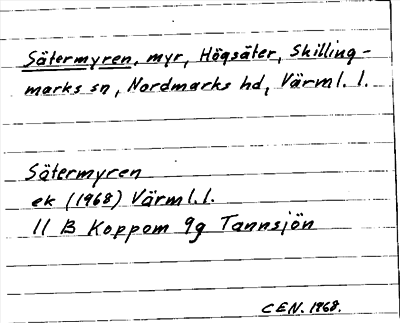 Sätermyren, myr, Högsäter, Skilling-
marks sn, Nordmarks hd, Värml. l.
Sätermyren
ek (1968) Värml. l.
11 B Koppom 9g Tannsjön
CEN. 1968.